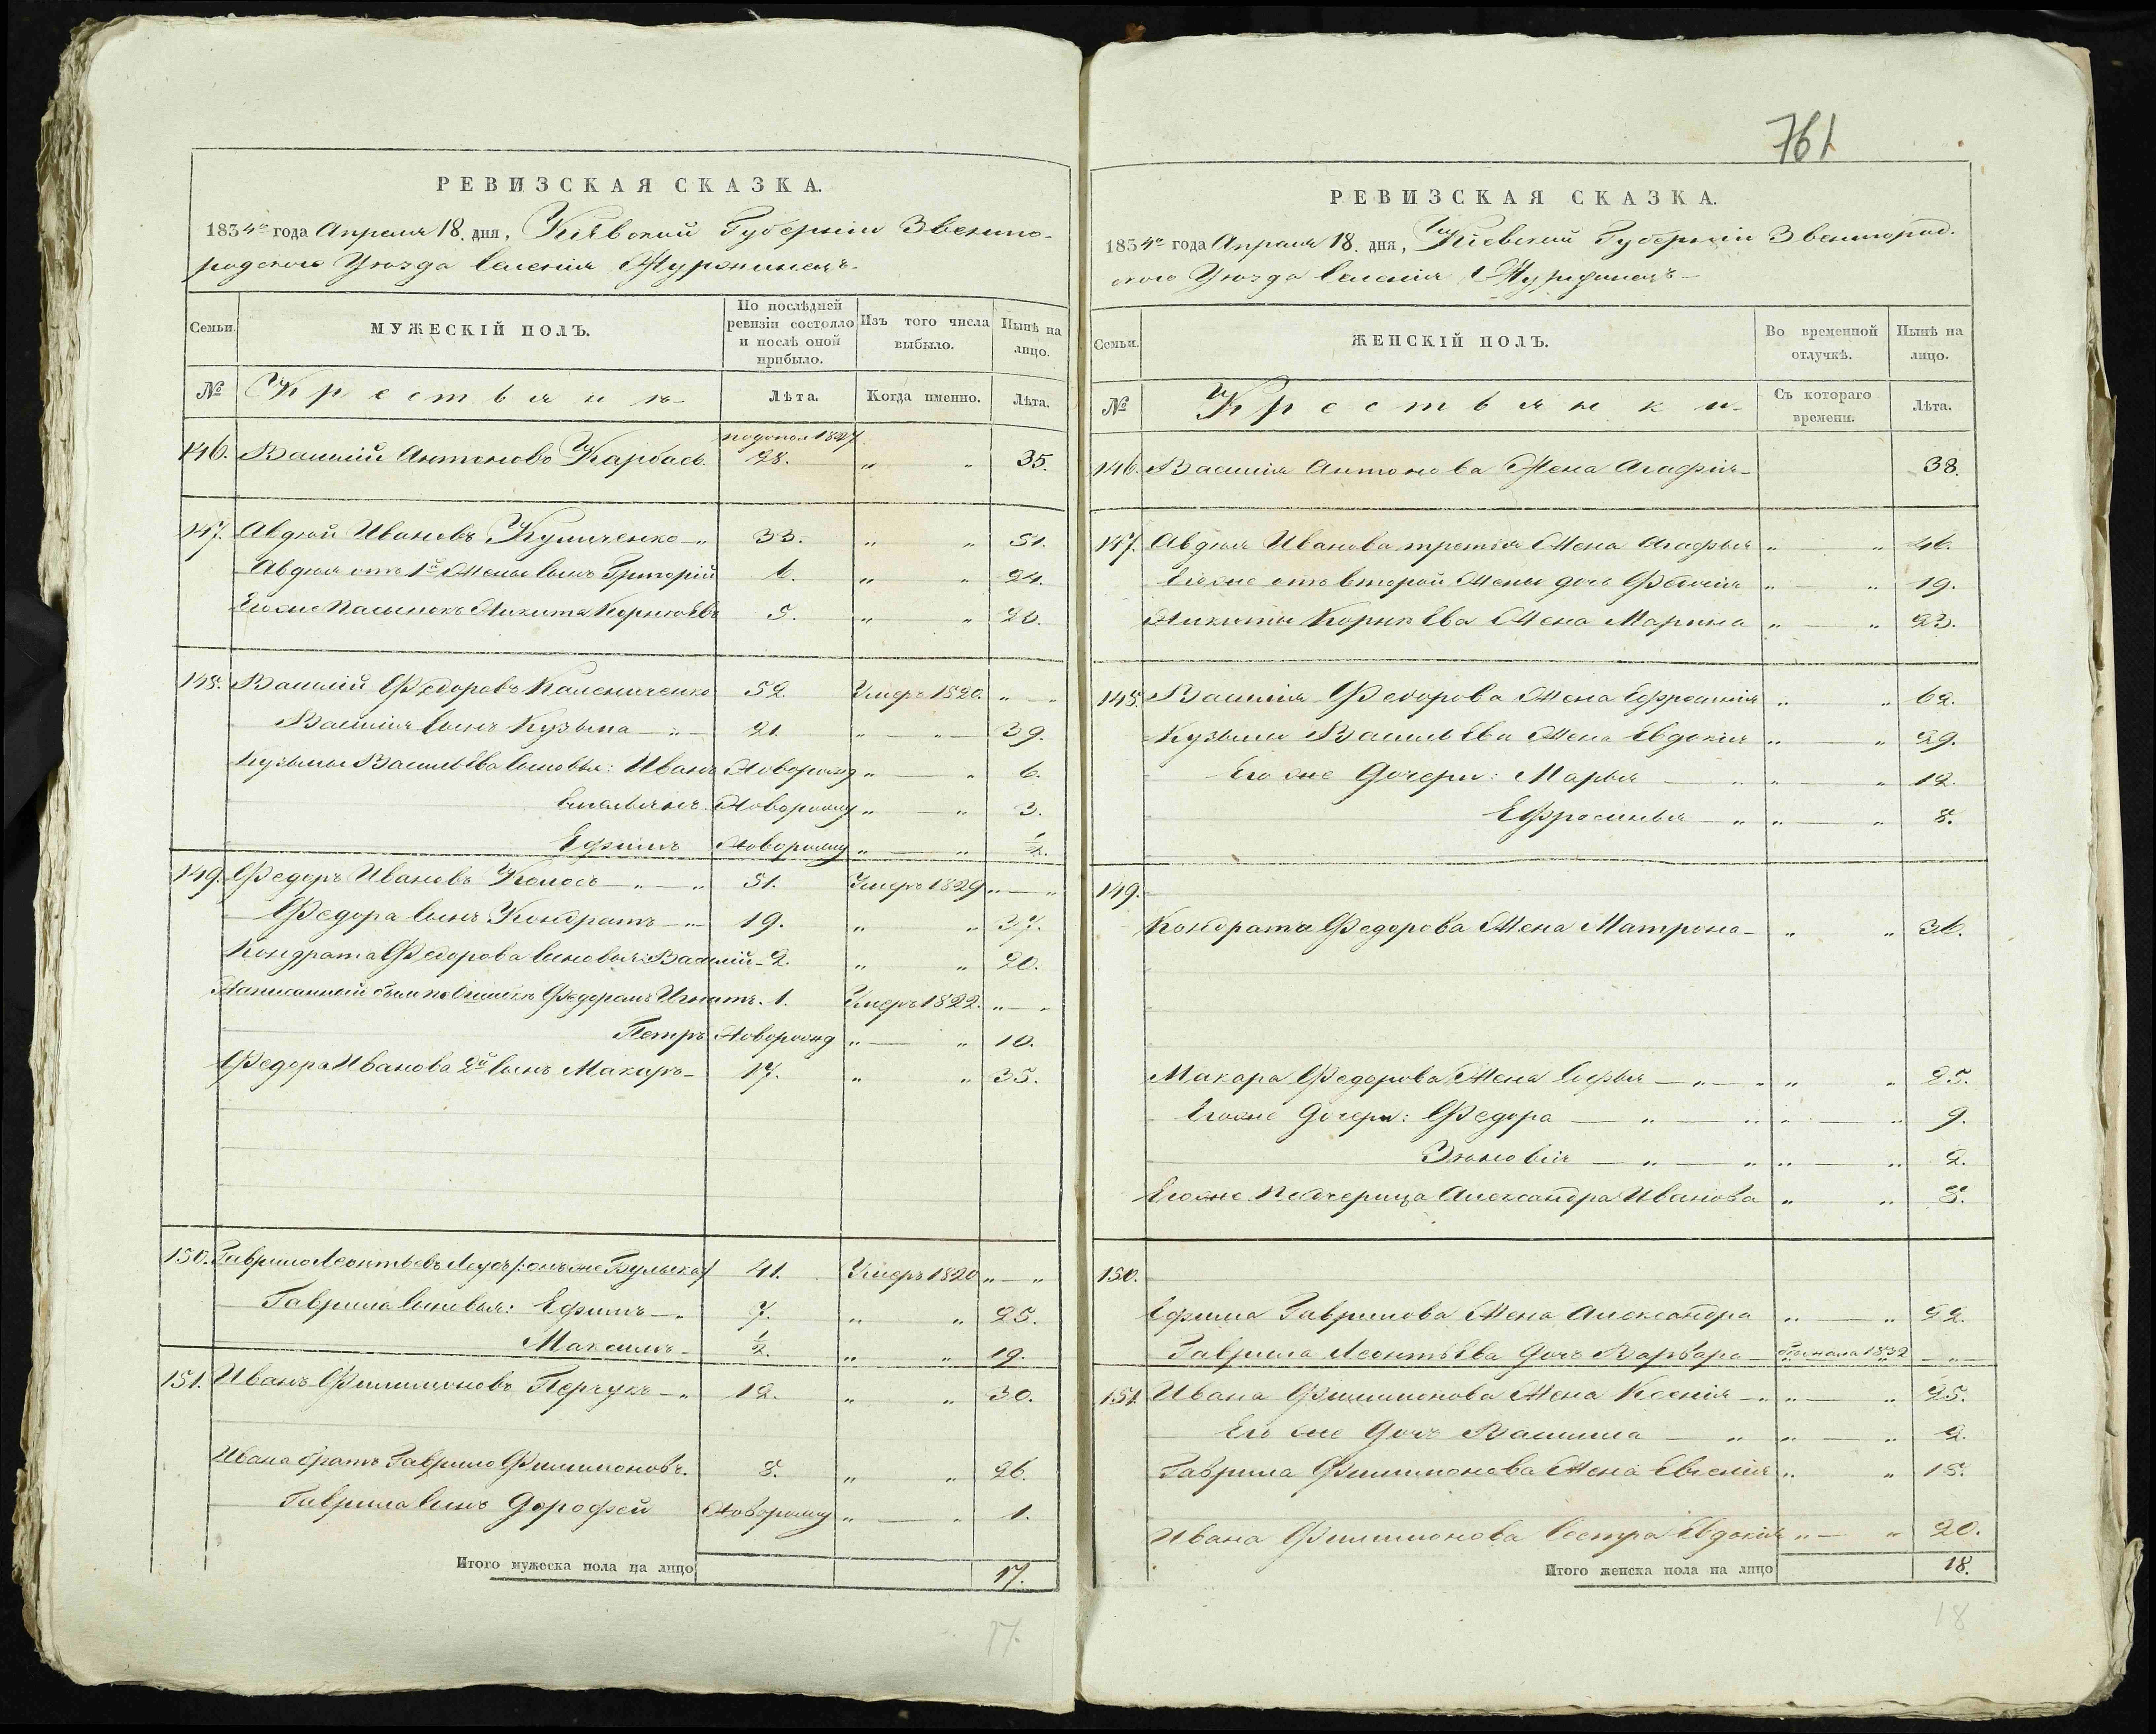 761
РЕВИЗСКАЯ СКАЗКА.
1834го года Апреля 18. дня, Киевской Губернiи Звениго-
родского Уезда Селенiя
Семьи. МУЖЕСКIЙ ПОЛЪ. По послѣдней ревизiи состояло и послѣ оной прибыло. Изъ того числа выбыло. Нынѣ на лицо.
№ Крестьянъ Лѣта. Когда именно. Лѣта.
146. Василiй Антоновъ Карбасъ. 1827 28. " " 35.
147. Авдѣй Ивановъ Куличенко " 33. " " 51.
Авдѣя отъ 1й Жены Сынъ Григорiй 6. " " 24.
Его же Пасынокъ Никита Корнѣевъ 5. " " 23.
148. Василiй Федоровъ Калениченко 52. Умеръ 1820. " "
Василiя Сынъ Кузьма 21. " " 39.
Кузьмы Васильева Сыновья: Иванъ Новорожд " " 6.
Емельянъ. Новорожд " " 3.
Ефимъ Новорожд " " ½.
149. Федоръ Ивановъ Колосъ " " 51. Умеръ 1829 " "
Федора Сынъ Кондратъ " 19. " " 37.
Кондрата Федорова Сыновья: Василiй 2. " " 20.
Федоромъ Игнатъ. 1. Умеръ 1822. " "
Петръ Новорожд " " 10.
Федора Иванова 2й Сынъ Макаръ 17. " " 35.
150. Гаврило Леонтьевъ 41. Умеръ 1820 " "
Гаврила Сыновья: Ефимъ " 7. " " 25.
Максимъ ½. " " 19.
151. Иванъ Филимоновъ Перчукъ " 12. " " 30.
Ивана братъ Гаврило Филимоновъ. 8. " " 26.
Гаврила Сынъ Дорофей Новорожд " " 1.
Итого мужеска пола на лицо 17.
17.
РЕВИЗСКАЯ СКАЗКА.
1834го года Апреля 18. дня, Кiевской Губернiи Звенигород-
ского Уезда Селенiя
Семьи. ЖЕНСКIЙ ПОЛЪ. Во временной отлучкѣ. Нынѣ на лицо.
№ Крестьянки Съ котораго времени. Лѣта.
146. Василiя Антонова Жена Агафiя 38.
147. Авдѣя Иванова третья Жена Агафья " " 46.
Его же отъ второй Жены дочь " " 19.
Никиты Корнѣева Жена Марина " " 23.
148. Василiя Федорова Жена Ефросинiя " " 62.
Кузьмы Васильева Жена Евдокiя " " 29.
Его же Дочери: Марья " " 12.
Ефросинья " " " 8.
149.
Кондрата Федорова Жена Матрона " " 36.
Макара Федорова Жена Софья " " " " 25.
Его же Дочери: Федора " " " " 9.
Зѣновiя " " " " 2.
Его же Падчерица Александра Иванова " " 8.
150.
Ефима Гаврилова Жена Александра " " 22.
Гаврила Леонтьева Дочь Варвара 1832
151. Ивана Филимонова Жена Ксенiя " " " 25.
Его же Дочь Василиса " " " 2.
Гаврила Филимонова Жена Евгенiя " " 18.
Ивана Филимонова Сестра Евдокiя " " 20.
Итого женска пола на лицо 18.
18